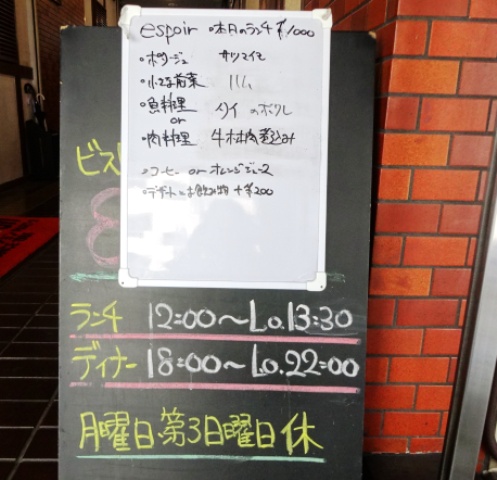 espoir 。本日のランチ ¥1000
。ポタージュ サツマイモ
。小さな前菜
。魚料理 タイ のポワレ
or
。肉料理 牛ホホ肉煮込み
。コーヒー or オレンジジュース
。デザートとお飲み物 +¥200
ビスト
ランチ 12:00〜L.o.13:30
ディナー 18:00〜L.o.22:00
月曜日第3日曜日休